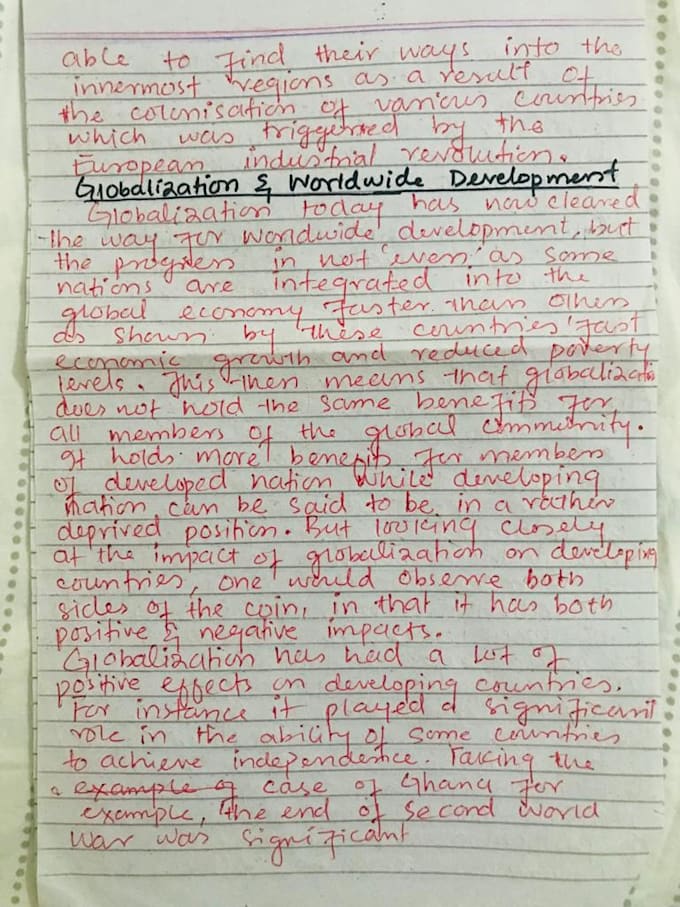 able to find their ways into the
innermost regions as a result of
the colonisation of various countries
which was triggered by the
European industrial revolution.
Globalization & Worldwide Development
Globalization today has now cleared
the way for worldwide development, but
the progress in not 'even' as some
nations are integrated into the
global economy faster than others
as shown by these countries' fast
economic growth and reduced poverty
levels. This then means that globalizatio
does not hold the same benefits for
all members of the global community.
It holds more benefits for members
of developed nation while developing
nation can be said to be in a rather
deprived position. But looking closely
at the impact of globalization on developing
countries, one would observe both
sides of the coin, in that it has both
positive & negative impacts.
Globalization has had a lot of
positive effects on developing countries.
For instance it played a significant
role in the ability of some countries
to achieve independence. Taking the
example of case of Ghana for
example, the end of second world
war was significant